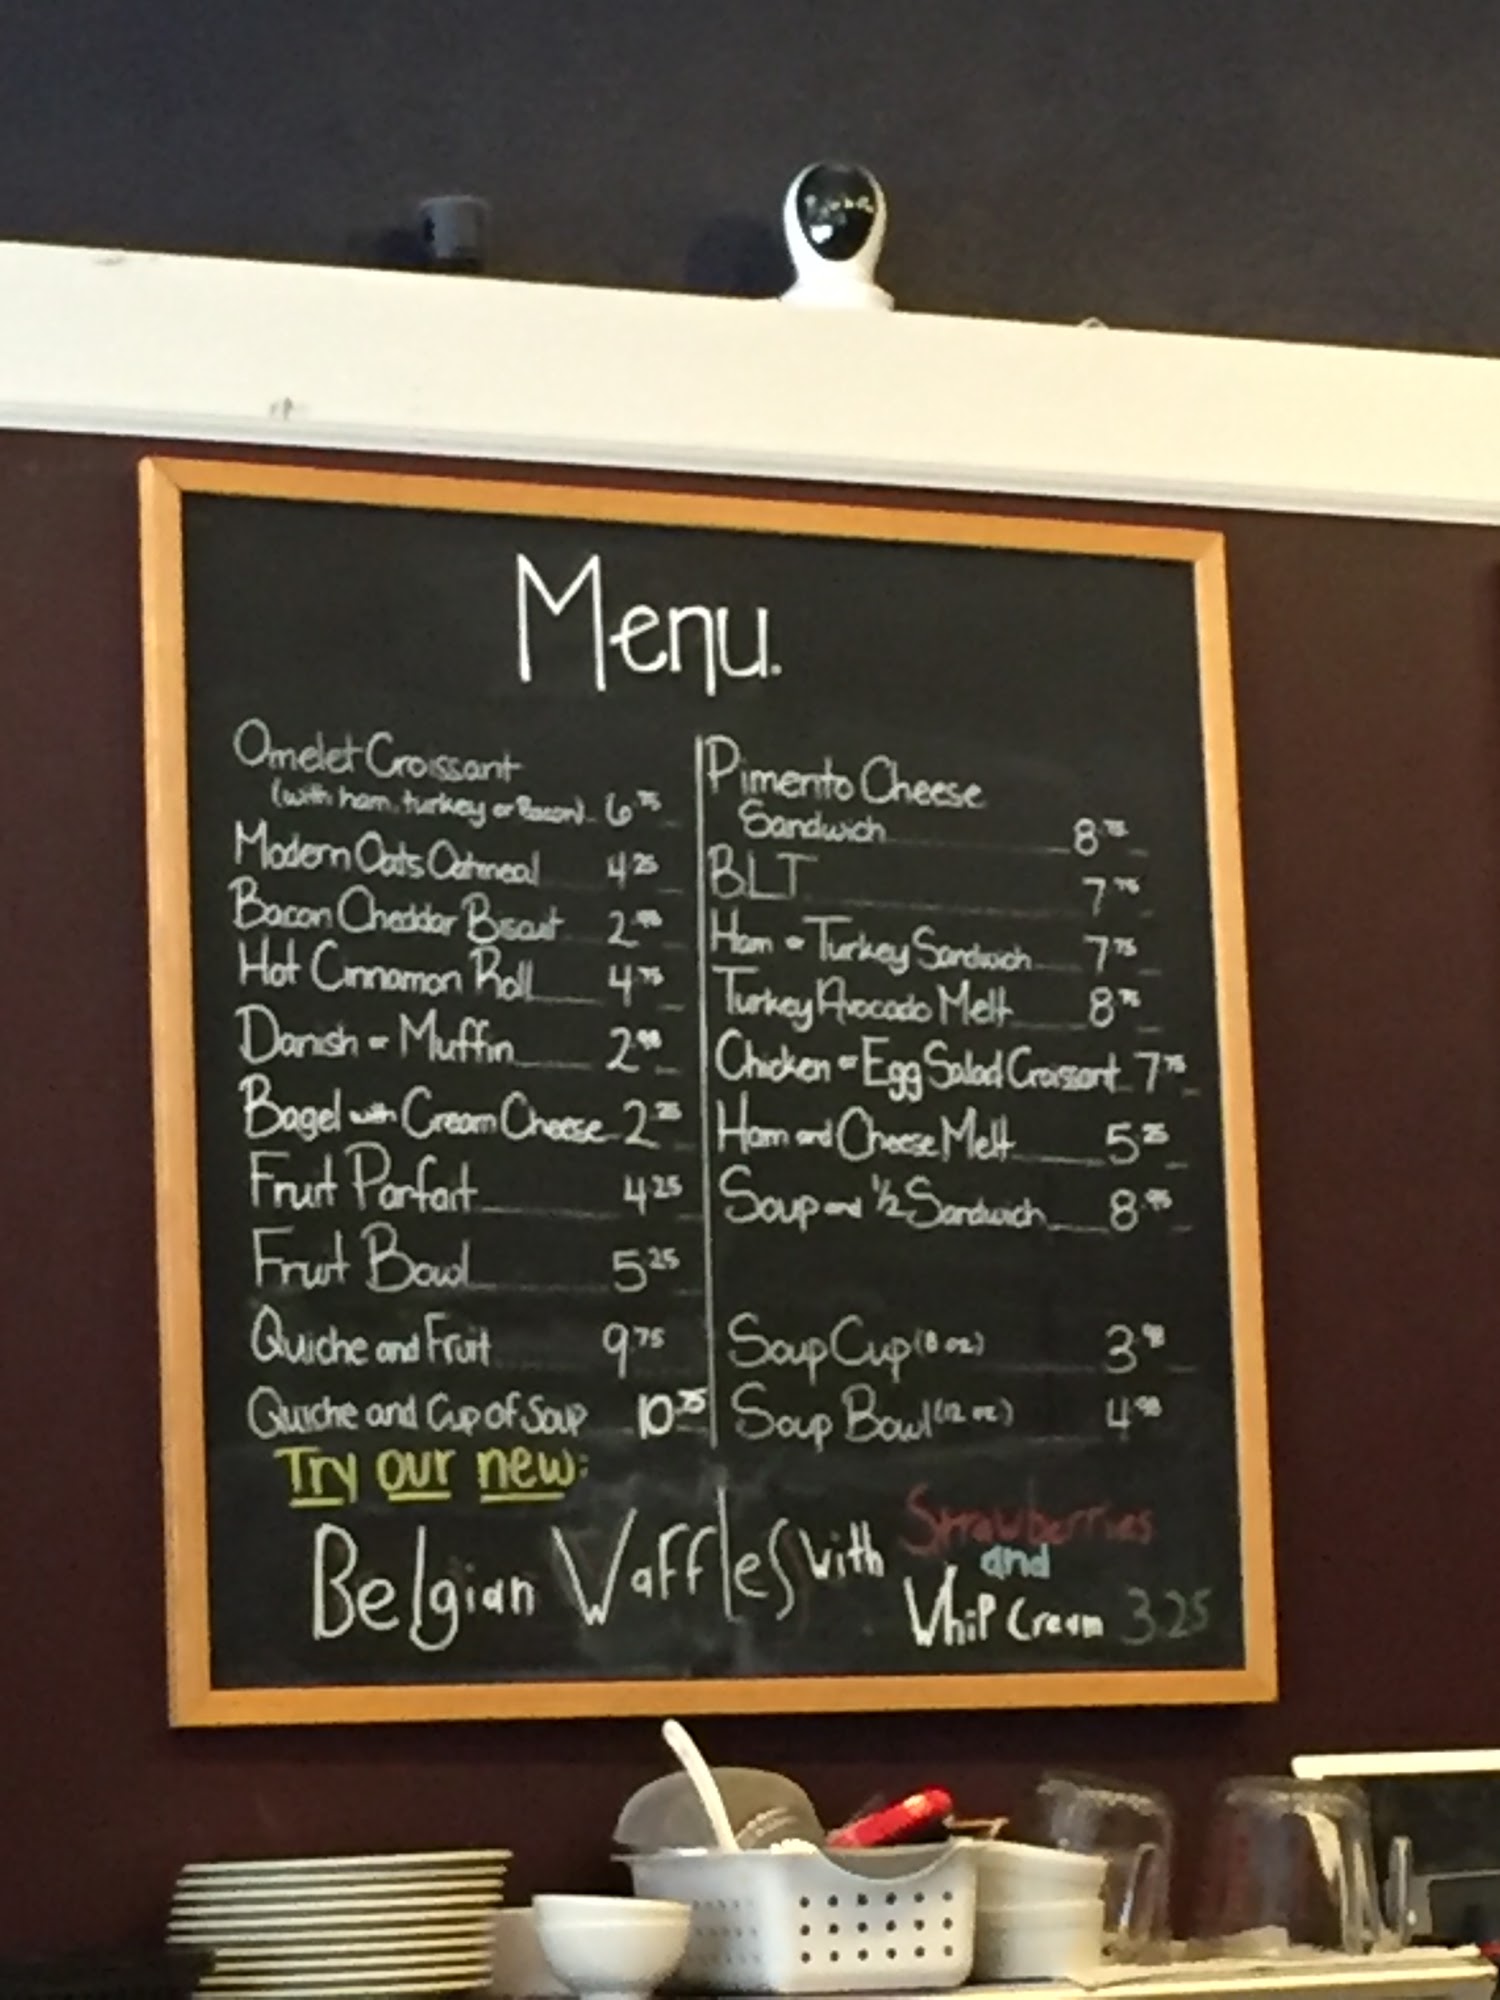 Menu.
Omelet Croissant
(with ham, turkey or Bacon) 6.75
Modern Oats Oatmeal 4.25
Bacon Cheddar Biscuit 2.98
Hot Cinnamon Roll 4.75
Danish or Muffin 2.98
Bagel with Cream Cheese 2.25
Fruit Parfait 4.25
Fruit Bowl 5.25
Quiche and Fruit 9.75
Quiche and Cup of Soup 10.75
Pimento Cheese
Sandwich 8.75
BLT 7.75
Ham or Turkey Sandwich 7.75
Turkey Avocado Melt 8.75
Chicken or Egg Salad Croissant 7.75
Ham and Cheese Melt 5.25
Soup and 1/2 Sandwich 8.95
Soup Cup (8 oz) 3.98
Soup Bowl (12 oz) 4.98
Try our new:
Belgian Waffles with Strawberries
and
Whip Cream 3.25